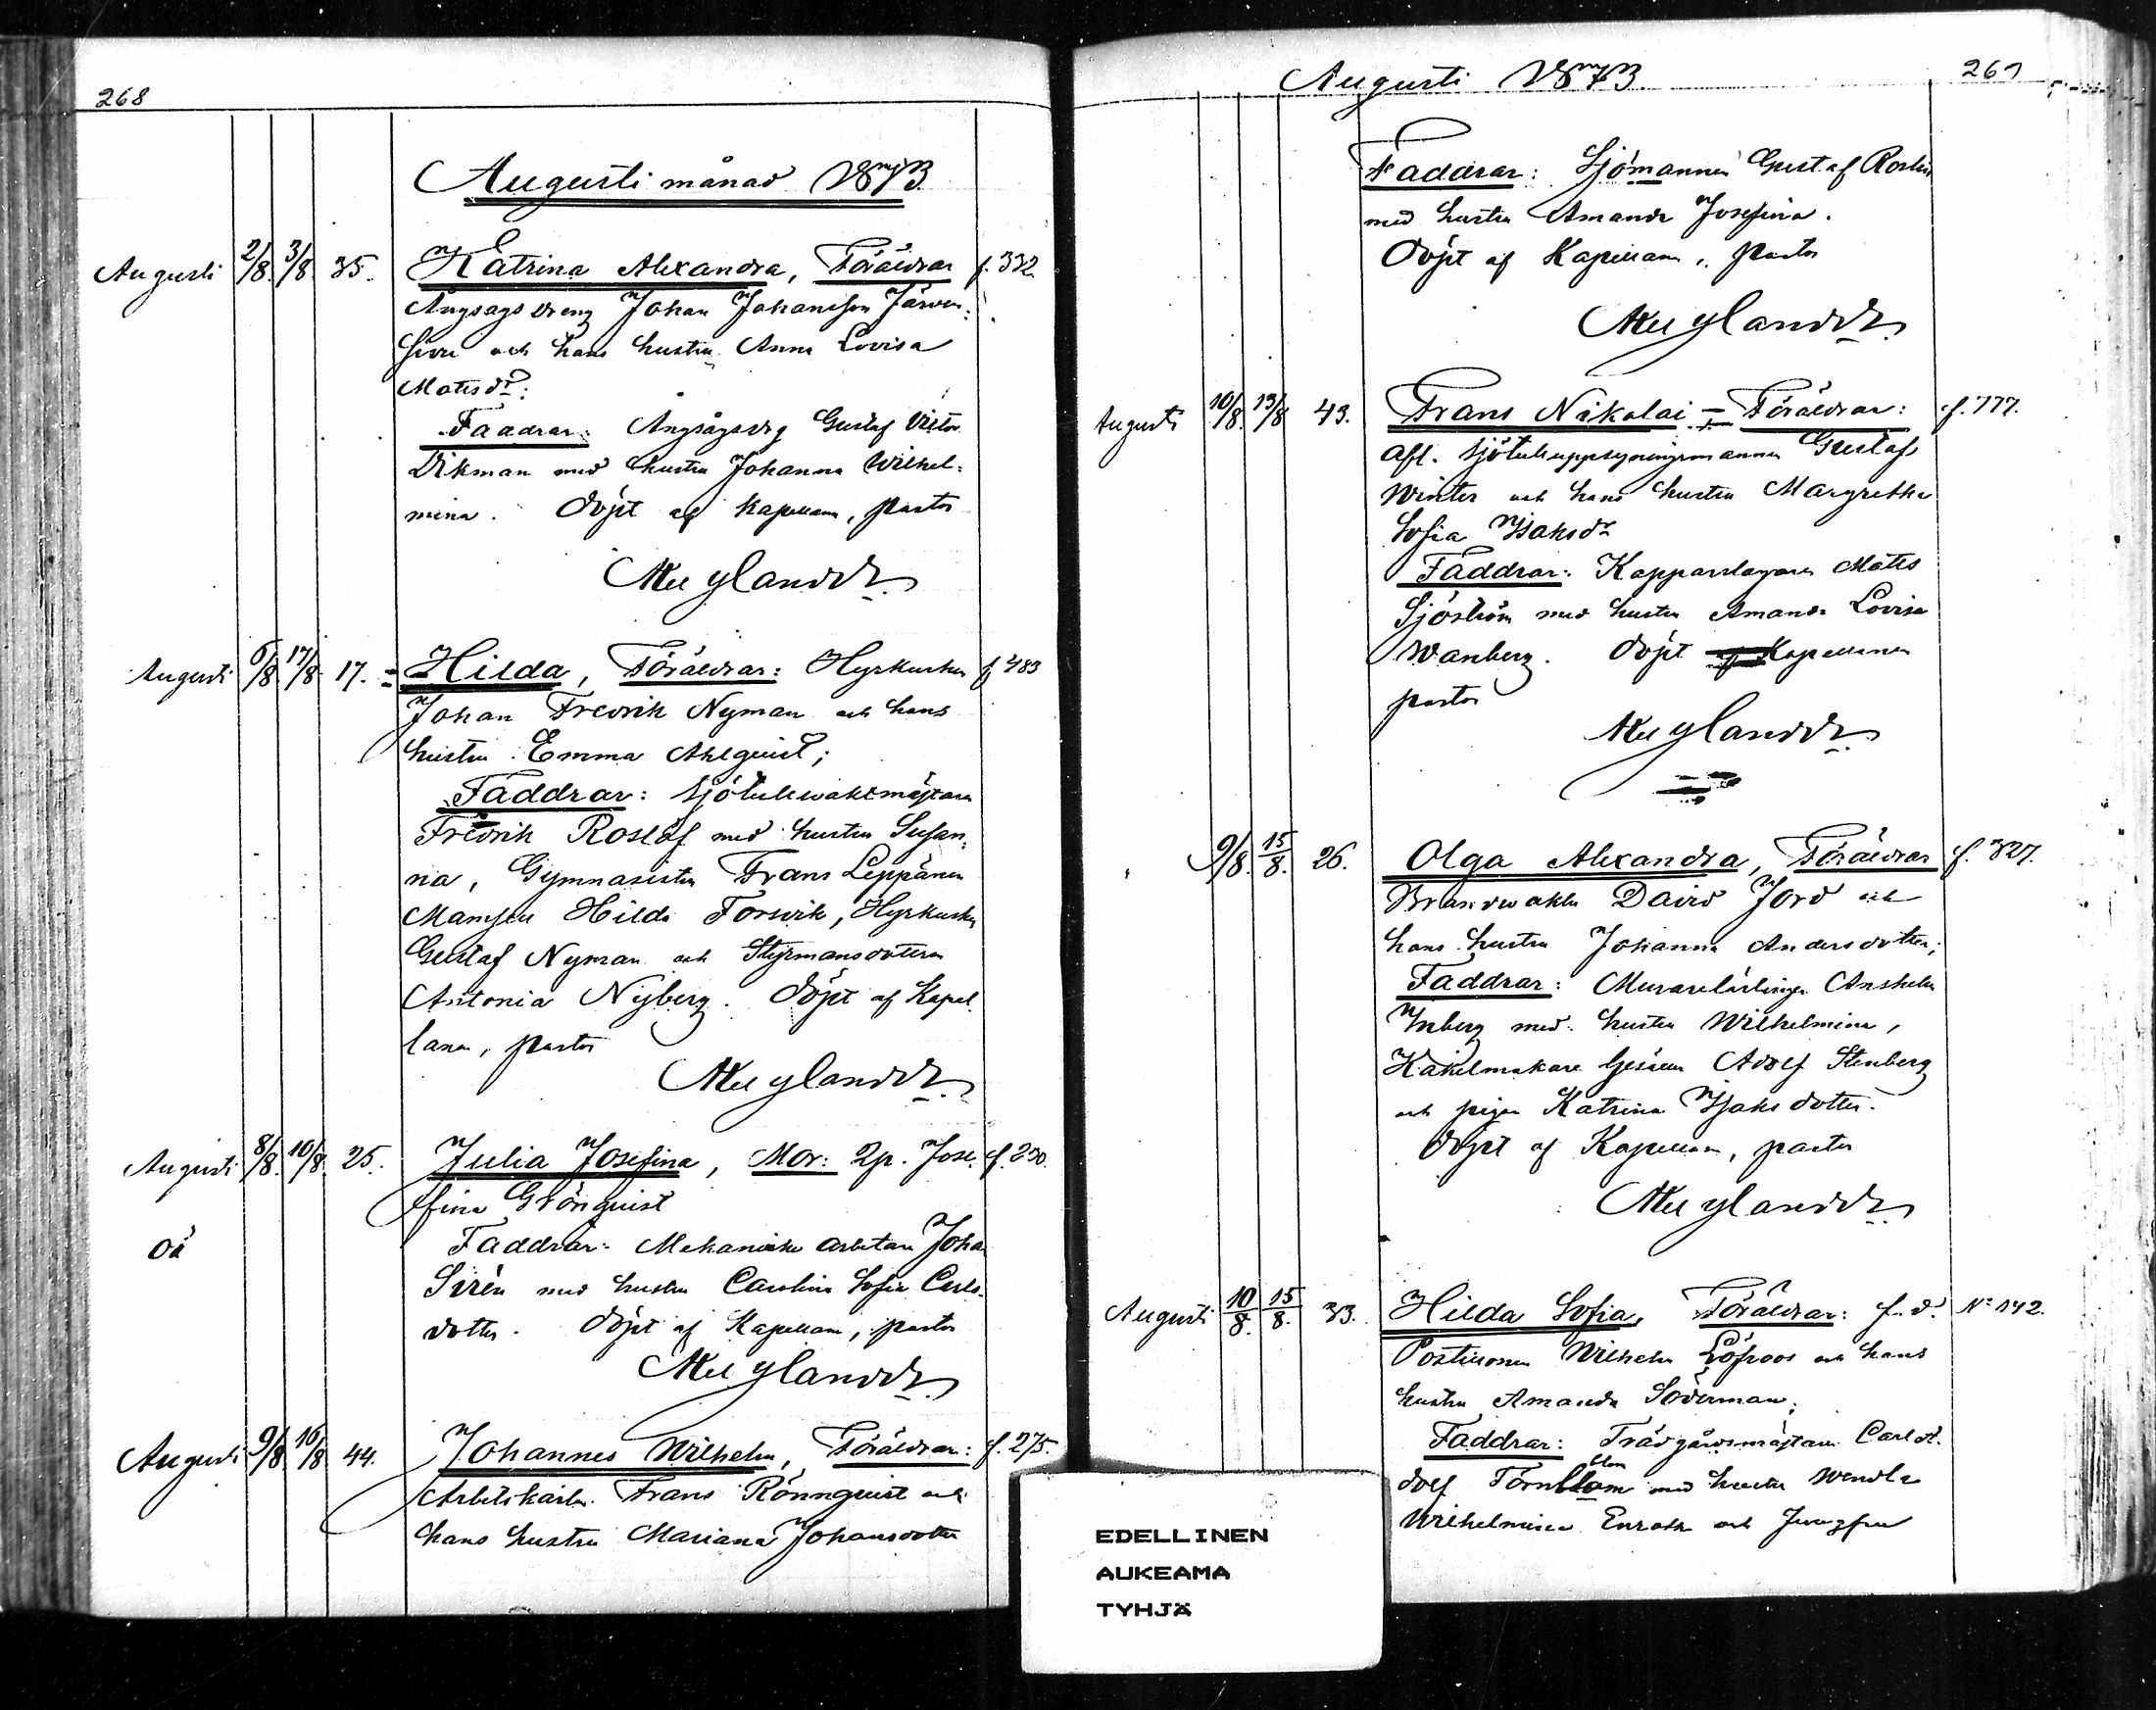 268
Augusti månad 1873.
Augusti 2/8. 3/8. 35. Katrina Alexandra, Föräldrar f. 332.
Ångsågs dreng Johan Johansson Järven-
och hans hustru Anna Lovisa
Matsdr:
Faddrar: Ångsågsdrg Gustaf Victor
Dikman med hustru Johanna Wilhel-
mina. Döpt af Kapellan, pastor
Augusti 6/8. 17/8. 17. Hilda, Föräldrar: Hyrkusken f. 483
Johan Fredrik Nyman och hans
hustru Emma Ahlquist;
Faddrar: Sjötullvaktmästaren
Fredrik Roslöf med hustru Susan-
na, Gymnasisten Frans Leppänen
Mamsell Hilda Forsvik, Hyrkusken
Gustaf Nyman och Styrmansdottern
Antonia Nyberg. Döpt af Kapel
lanen, pastor
Augusti 8/8. 10/8. 25. Julia Josefina, Mor: Qp. Jose- f. 230.
fina Grönquist
Oä Faddrar: Mekaniske arbetaren Johan
Sirén med hustru Carolina Sofia Carls-
dotter. Döpt af Kapellan, pastor
Augusti 9/8. 16/8 44. Johannes Wilhelm, Föräldrar: f. 275.
Arbetskarlen Frans Rönnquist och
hans hustru Mariana Johansdotter
Augusti 1873. 269
Faddrar: Sjömannen Gustaf Roslin
med hustru Amanda Josefina.
Döpt af Kapellan, pastor
Augusti 10/8. 13/8 43. Frans Nikolai = Föräldrar: f. 777.
Afl. Sjötulluppsyningsmannen Gustaf
Winter och hans hustru Margretha
Sofia Isaksdr
Faddrar: Kopparslagaren Mats
Sjöström med hustru Amanda Lovisa
Wanberg. Döpt af Kapellanen
pastor
9/8. 15/8. 26. Olga Alexandra, Föräldrar f. 327.
Brandvakten David Jord och
hans hustru Johanna Andersdotter;
Faddrar: Murarelärlingen Anshelm
Inberg med hustru Wilhelmina,
Kakelmakare Gesällen Adolf Stenberg
och pigan Katrina Isaksdotter.
Döpt af Kapellan, pastor
Augusti 10/8. 15/8. 33. Hilda Sofia, Föräldrar: f. d. No 142.
Postiljonen Wilhelm Löfroos och hans
hustru Amanda Söderman;
Faddrar: Trädgårdsmästaren Carl A-
dolf Törnblom med hustru Wendla
Wilhelmina Enroth och Jungfru
EDELLINEN
AUKEAMA
TYHJÄ